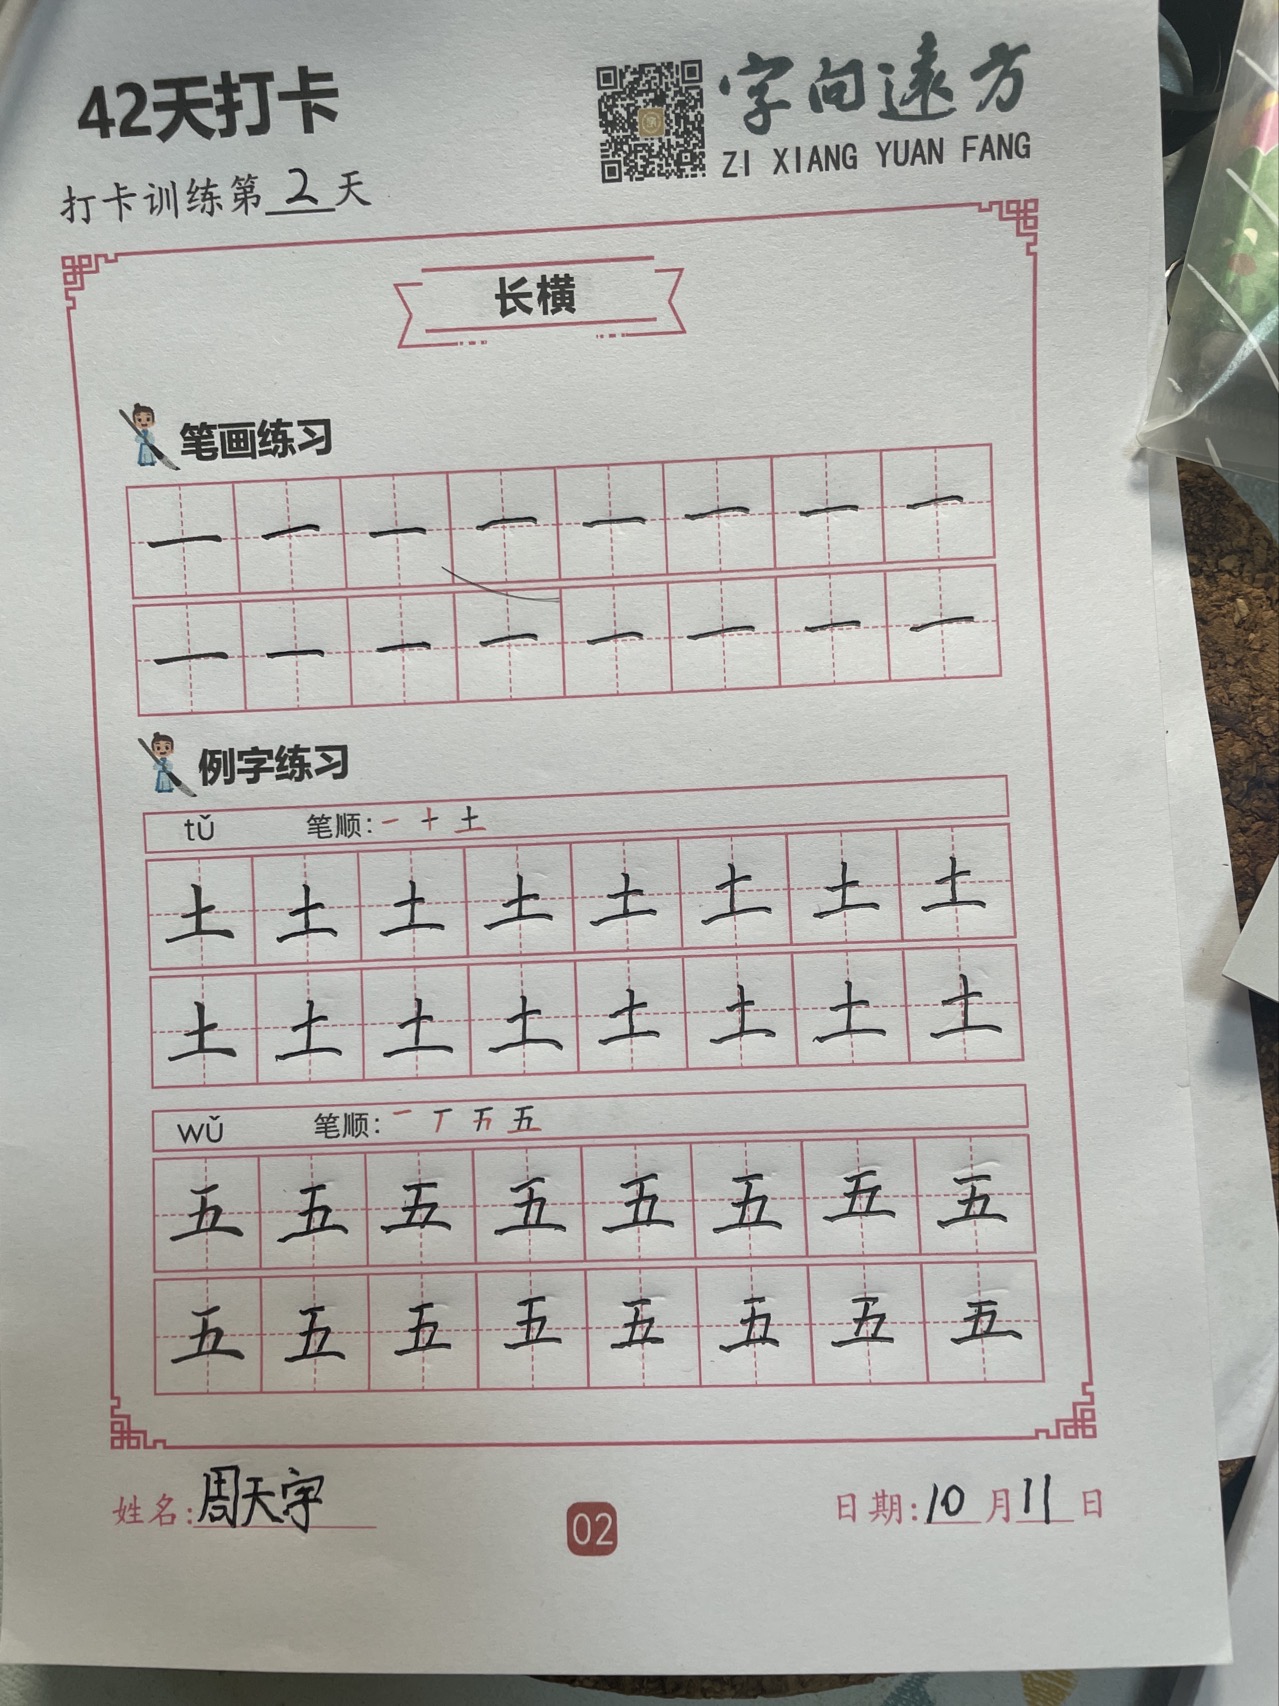 42天打卡
字向远方
ZI XIANG YUAN FANG
打卡训练第2天
长横
笔画练习
一 一 一 一 一 一 一 一
一 一 一 一 一 一 一 一
例字练习
tǔ 笔顺: 一 十 土
土 土 土 土 土 土 土 土
土 土 土 土 土 土 土 土
wǔ 笔顺: 一 丅 五
五 五 五 五 五 五 五 五
五 五 五 五 五 五 五 五
姓名:周天宇
02
日期:10月11日